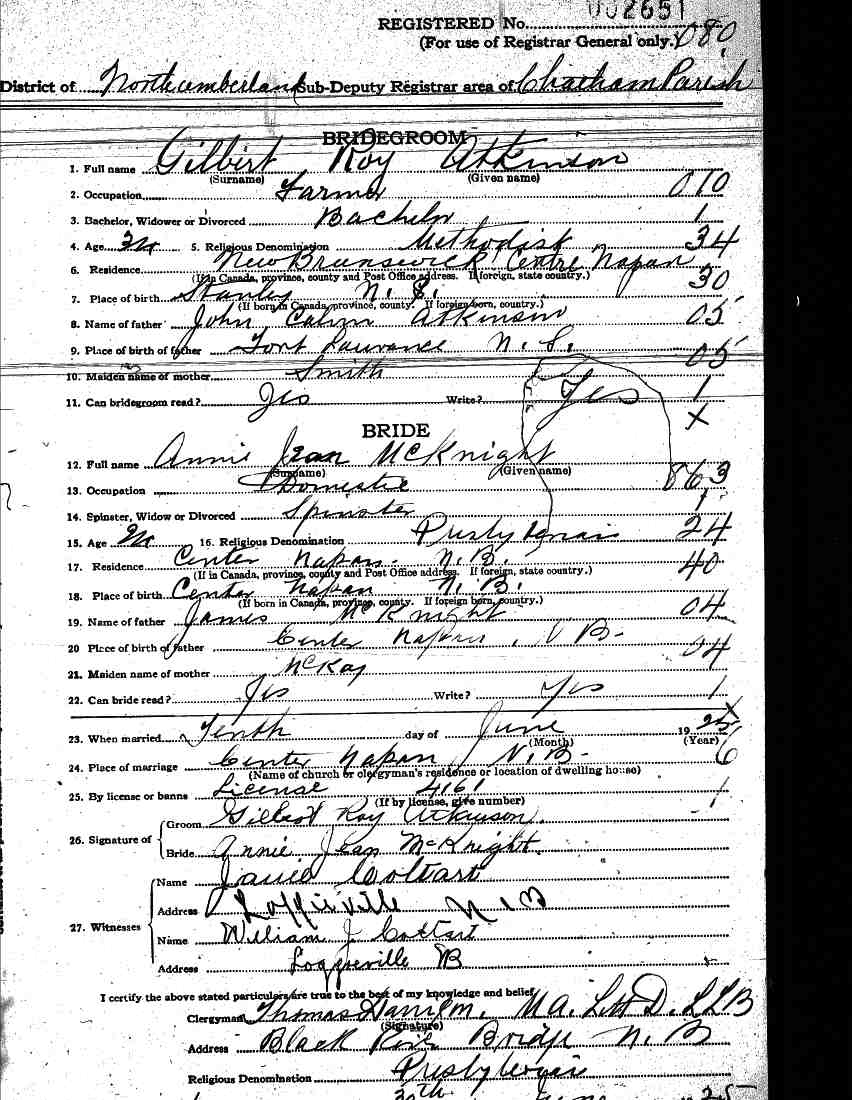 002651
REGISTERED No.
(For use of Registrar General only.) 080
District of Northumberland Sub-Deputy Registrar area of Chatham Parish
BRIDEGROOM
1. Full name Gilbert Roy Atkinson
(Surname) (Given name)
2. Occupation Farmer 010
3. Bachelor, Widower or Divorced Bachelor 1
4. Age 5. Religious Denomination Methodist 34
6. Residence New Brunswick Centre Napan
(If in Canada, province, county and Post Office address. If foreign, state country.) 30
7. Place of birth Stanley N. S.
(If born in Canada, province, county. If foreign born, country.)
8. Name of father John Calvin Atkinson 05
9. Place of birth of father Fort Laurance N. S. 05
10. Maiden name of mother Smith
11. Can bridegroom read? Yes Write? Yes 1
X
BRIDE
12. Full name Annie Jean McKnight
(Surname) (Given name)
13. Occupation Domestic 863
14. Spinster, Widow or Divorced Spinster 1
15. Age 16. Religious Denomination Presbyterian 24
17. Residence Center Napan. N. B. 40
(If in Canada, province, county and Post Office address. If foreign, state country.)
18. Place of birth Center Napan N. B.
(If born in Canada, province, county. If foreign born, country.)
19. Name of father James McKnight 04
20 Place of birth of father Center Napan, N B- 04
21. Maiden name of mother McKay
22. Can bride read? Yes Write? Yes 1
X
23. When married Tenth day of June 1925
(Month) (Year)
24. Place of marriage Center Napan N. B- 6
(Name of church or clergyman's residence or location of dwelling house)
25. By license or banns License 4161 1
(If by license, give number)
26. Signature of
Groom Gilbert Roy Atkinson
Bride Annie Jean McKnight
27. Witnesses
Name James Coltart
Address Loggieville N B
Name William J. Coltart
Address Loggieville NB
I certify the above stated particulars are true to the best of my knowledge and belief
Clergyman Thomas M.A. Litt D. LLB
(Signature)
Address Black River Bridge N. B
Religious Denomination Presbyterian
30th June 25